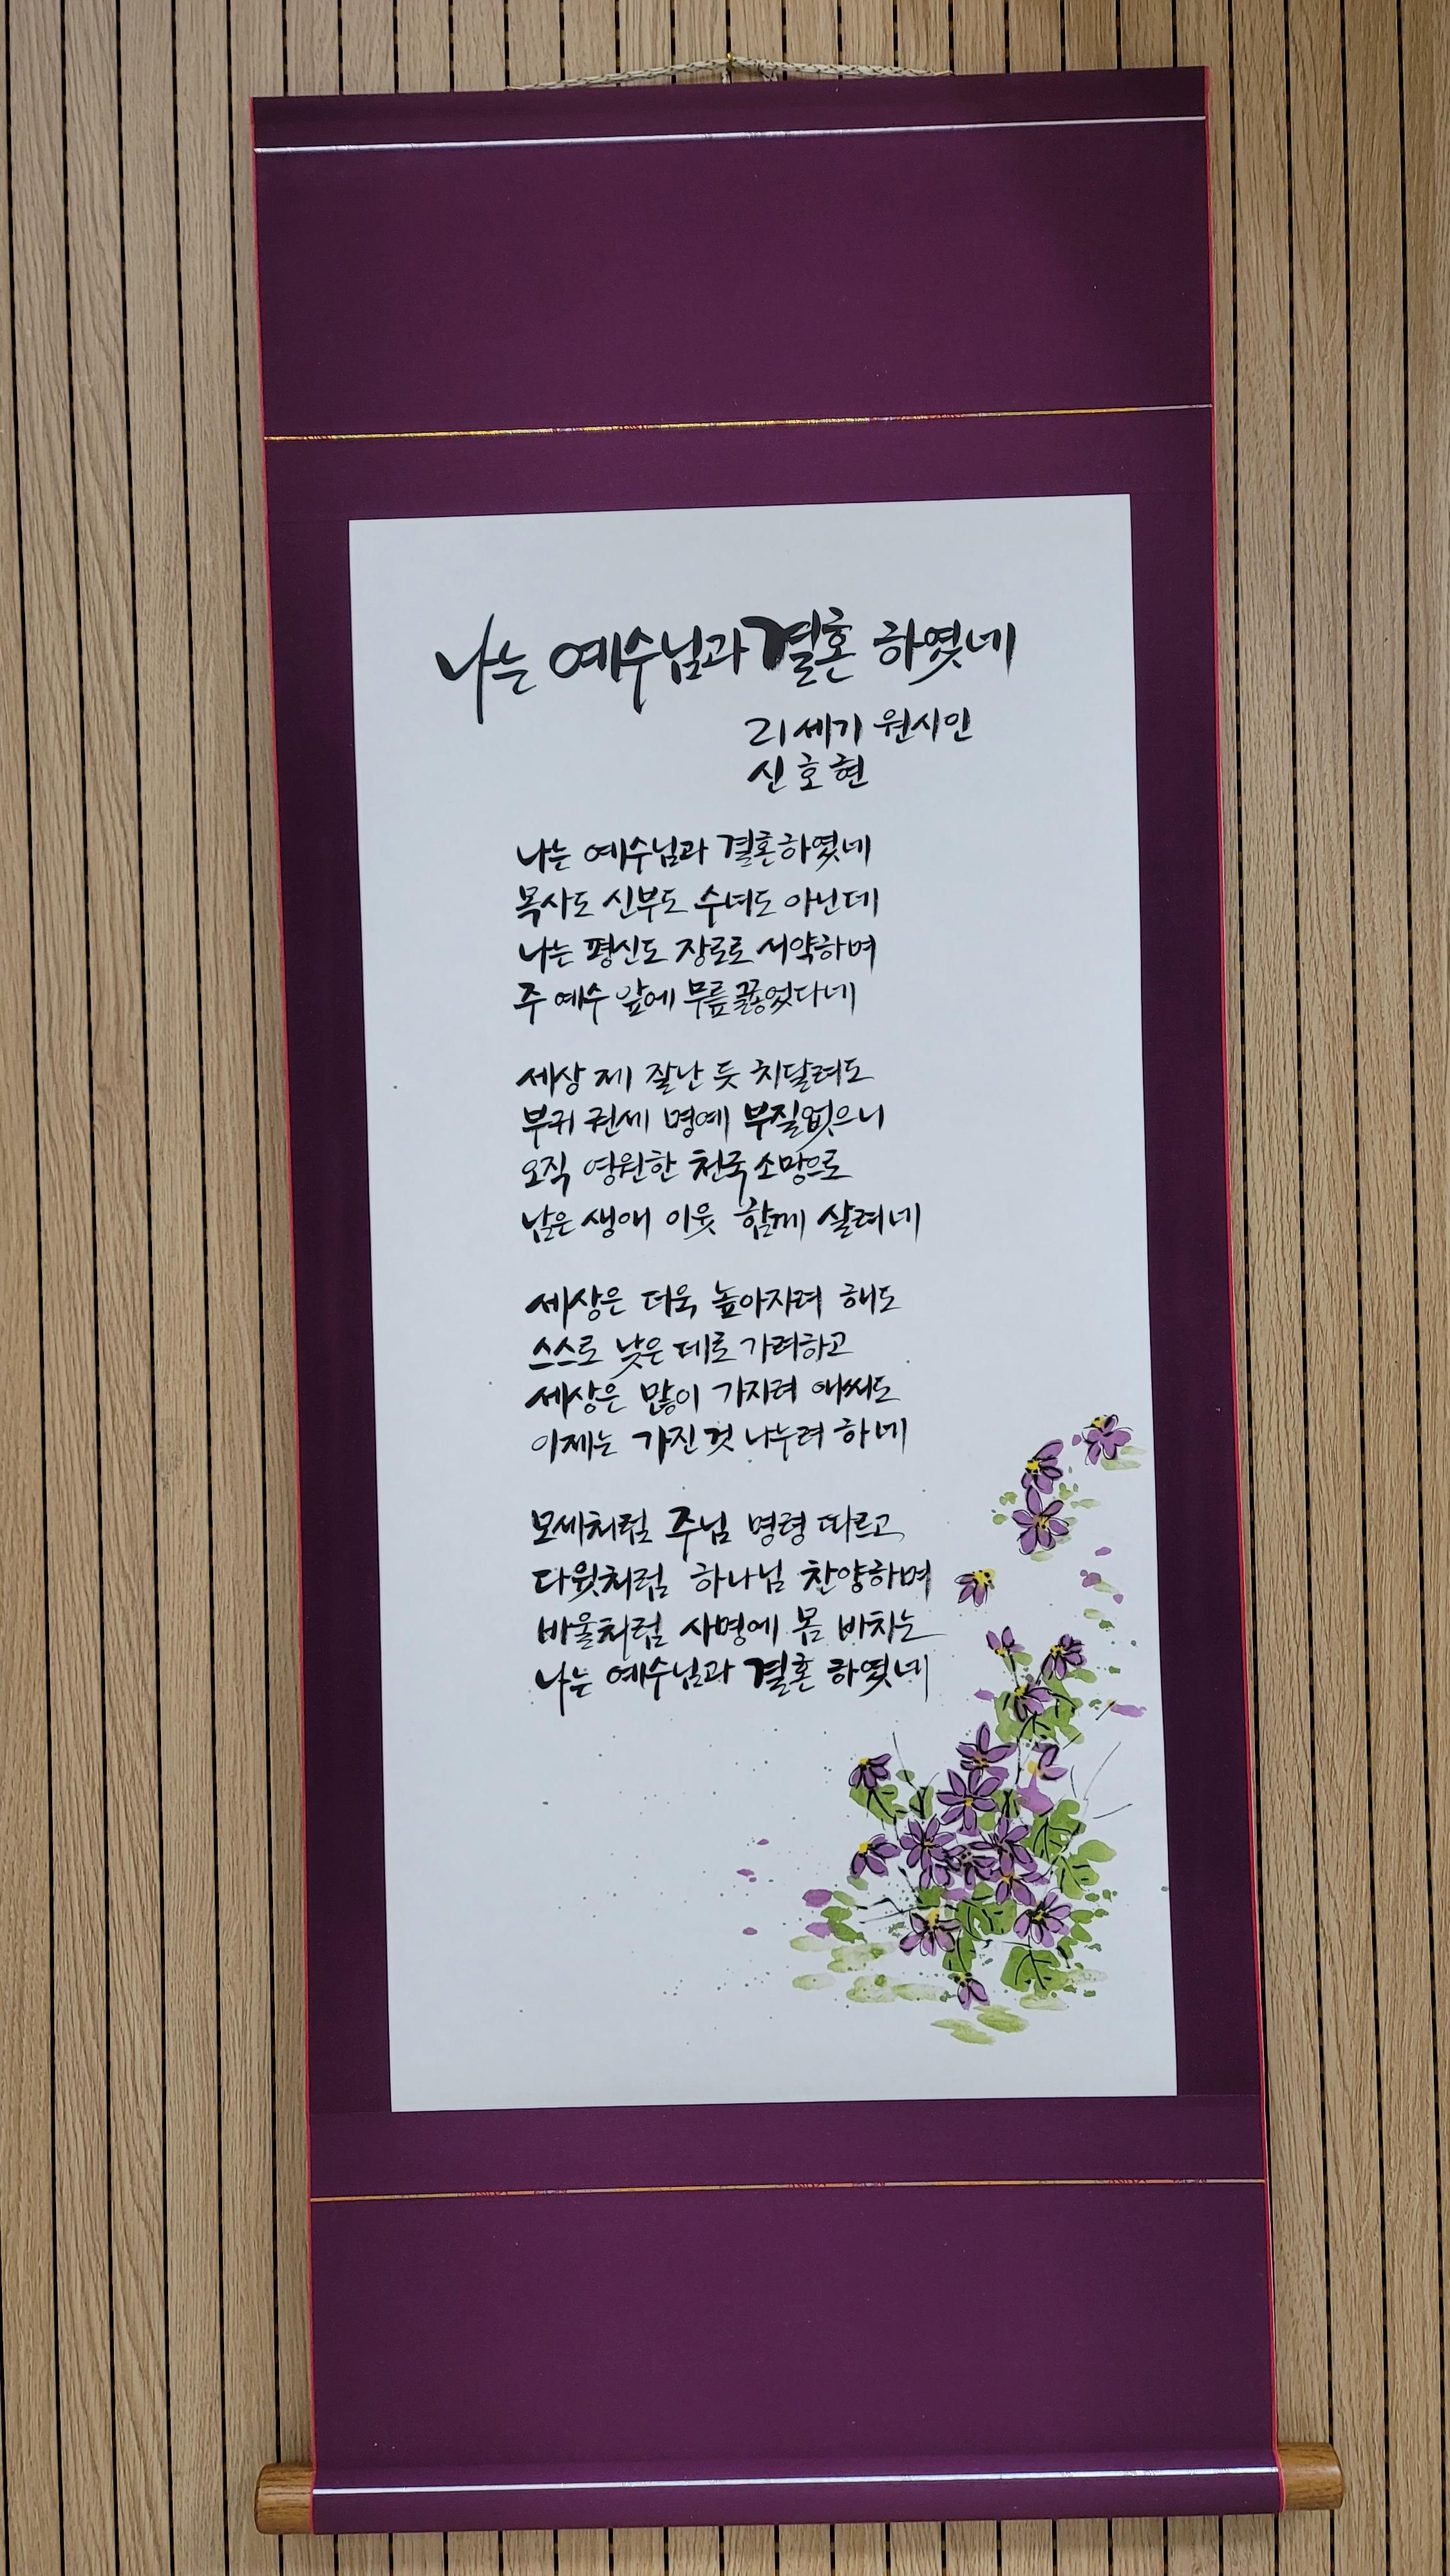 나는 예수님과 결혼 하였네
21세기 원시인
신호현
나는 예수님과 결혼하였네
목사도 신부도 수녀도 아닌데
나는 평신도 장로로 서약하며
주 예수 앞에 무릎 꿇었다네
세상 제 잘난 듯 치달려도
부귀 권세 명예 부질없으니
오직 영원한 천국 소망으로
남은 생애 이웃 함께 살려네
세상은 더욱 높아지려 해도
스스로 낮은 데로 가려하고
세상은 많이 가지려 애써도
이제는 가진 것 나누려 하네
모세처럼 주님 명령 따르고
다윗처럼 하나님 찬양하며
바울처럼 사명에 몸 바치는
나는 예수님과 결혼 하였네